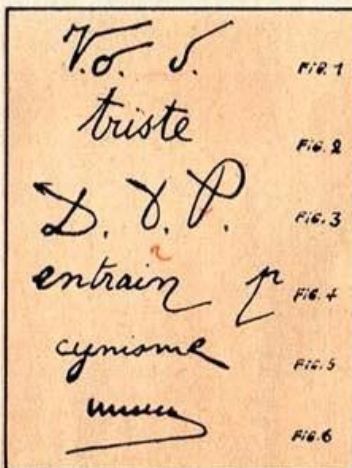 V. o. d. FIG. 1
triste FIG. 2
D. V. P. FIG. 3
entrain p FIG. 4
cynisme FIG. 5
FIG. 6